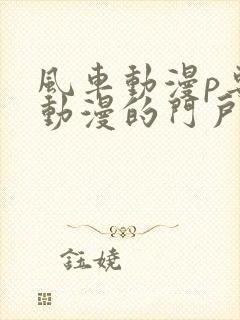 風車動漫p
動漫的門戶
鈺嬈